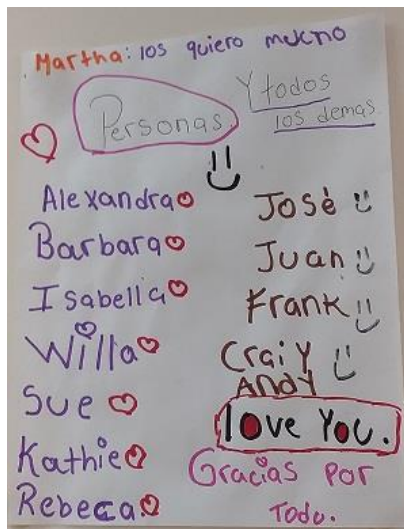 Martha: los quiero mucho
Personas. Y todos
los demas.
Alexandra
Barbara
Isabella
Willa
Sue
Kathie
Rebeca.
José
Juan
Frank
Craiy
ANDY
love You.
Gracias Por
Todo.